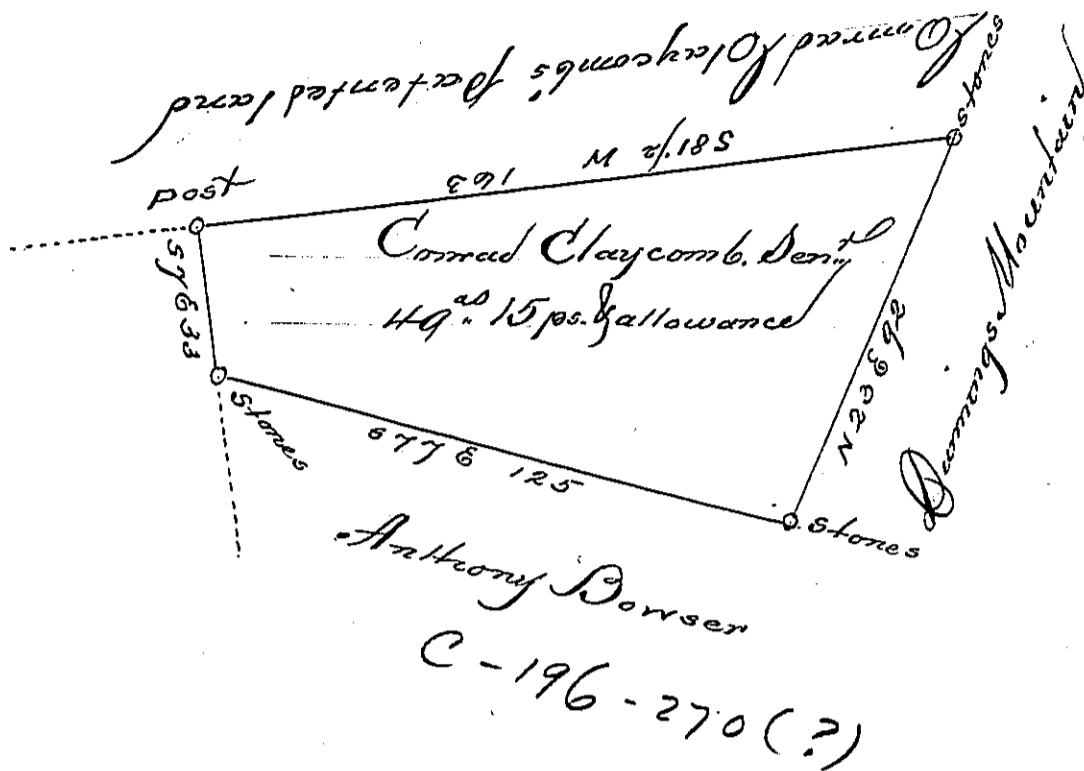 Conrad Claycomb's patented land
stones
S81½ W 163
post
Conrad Claycomb. Senr
49as 15 ps. & allowance
S7E33
N23E92
Dunnings Mountain
stones
S77E 125
stones
Anthony Bowser
C-196-270(?)